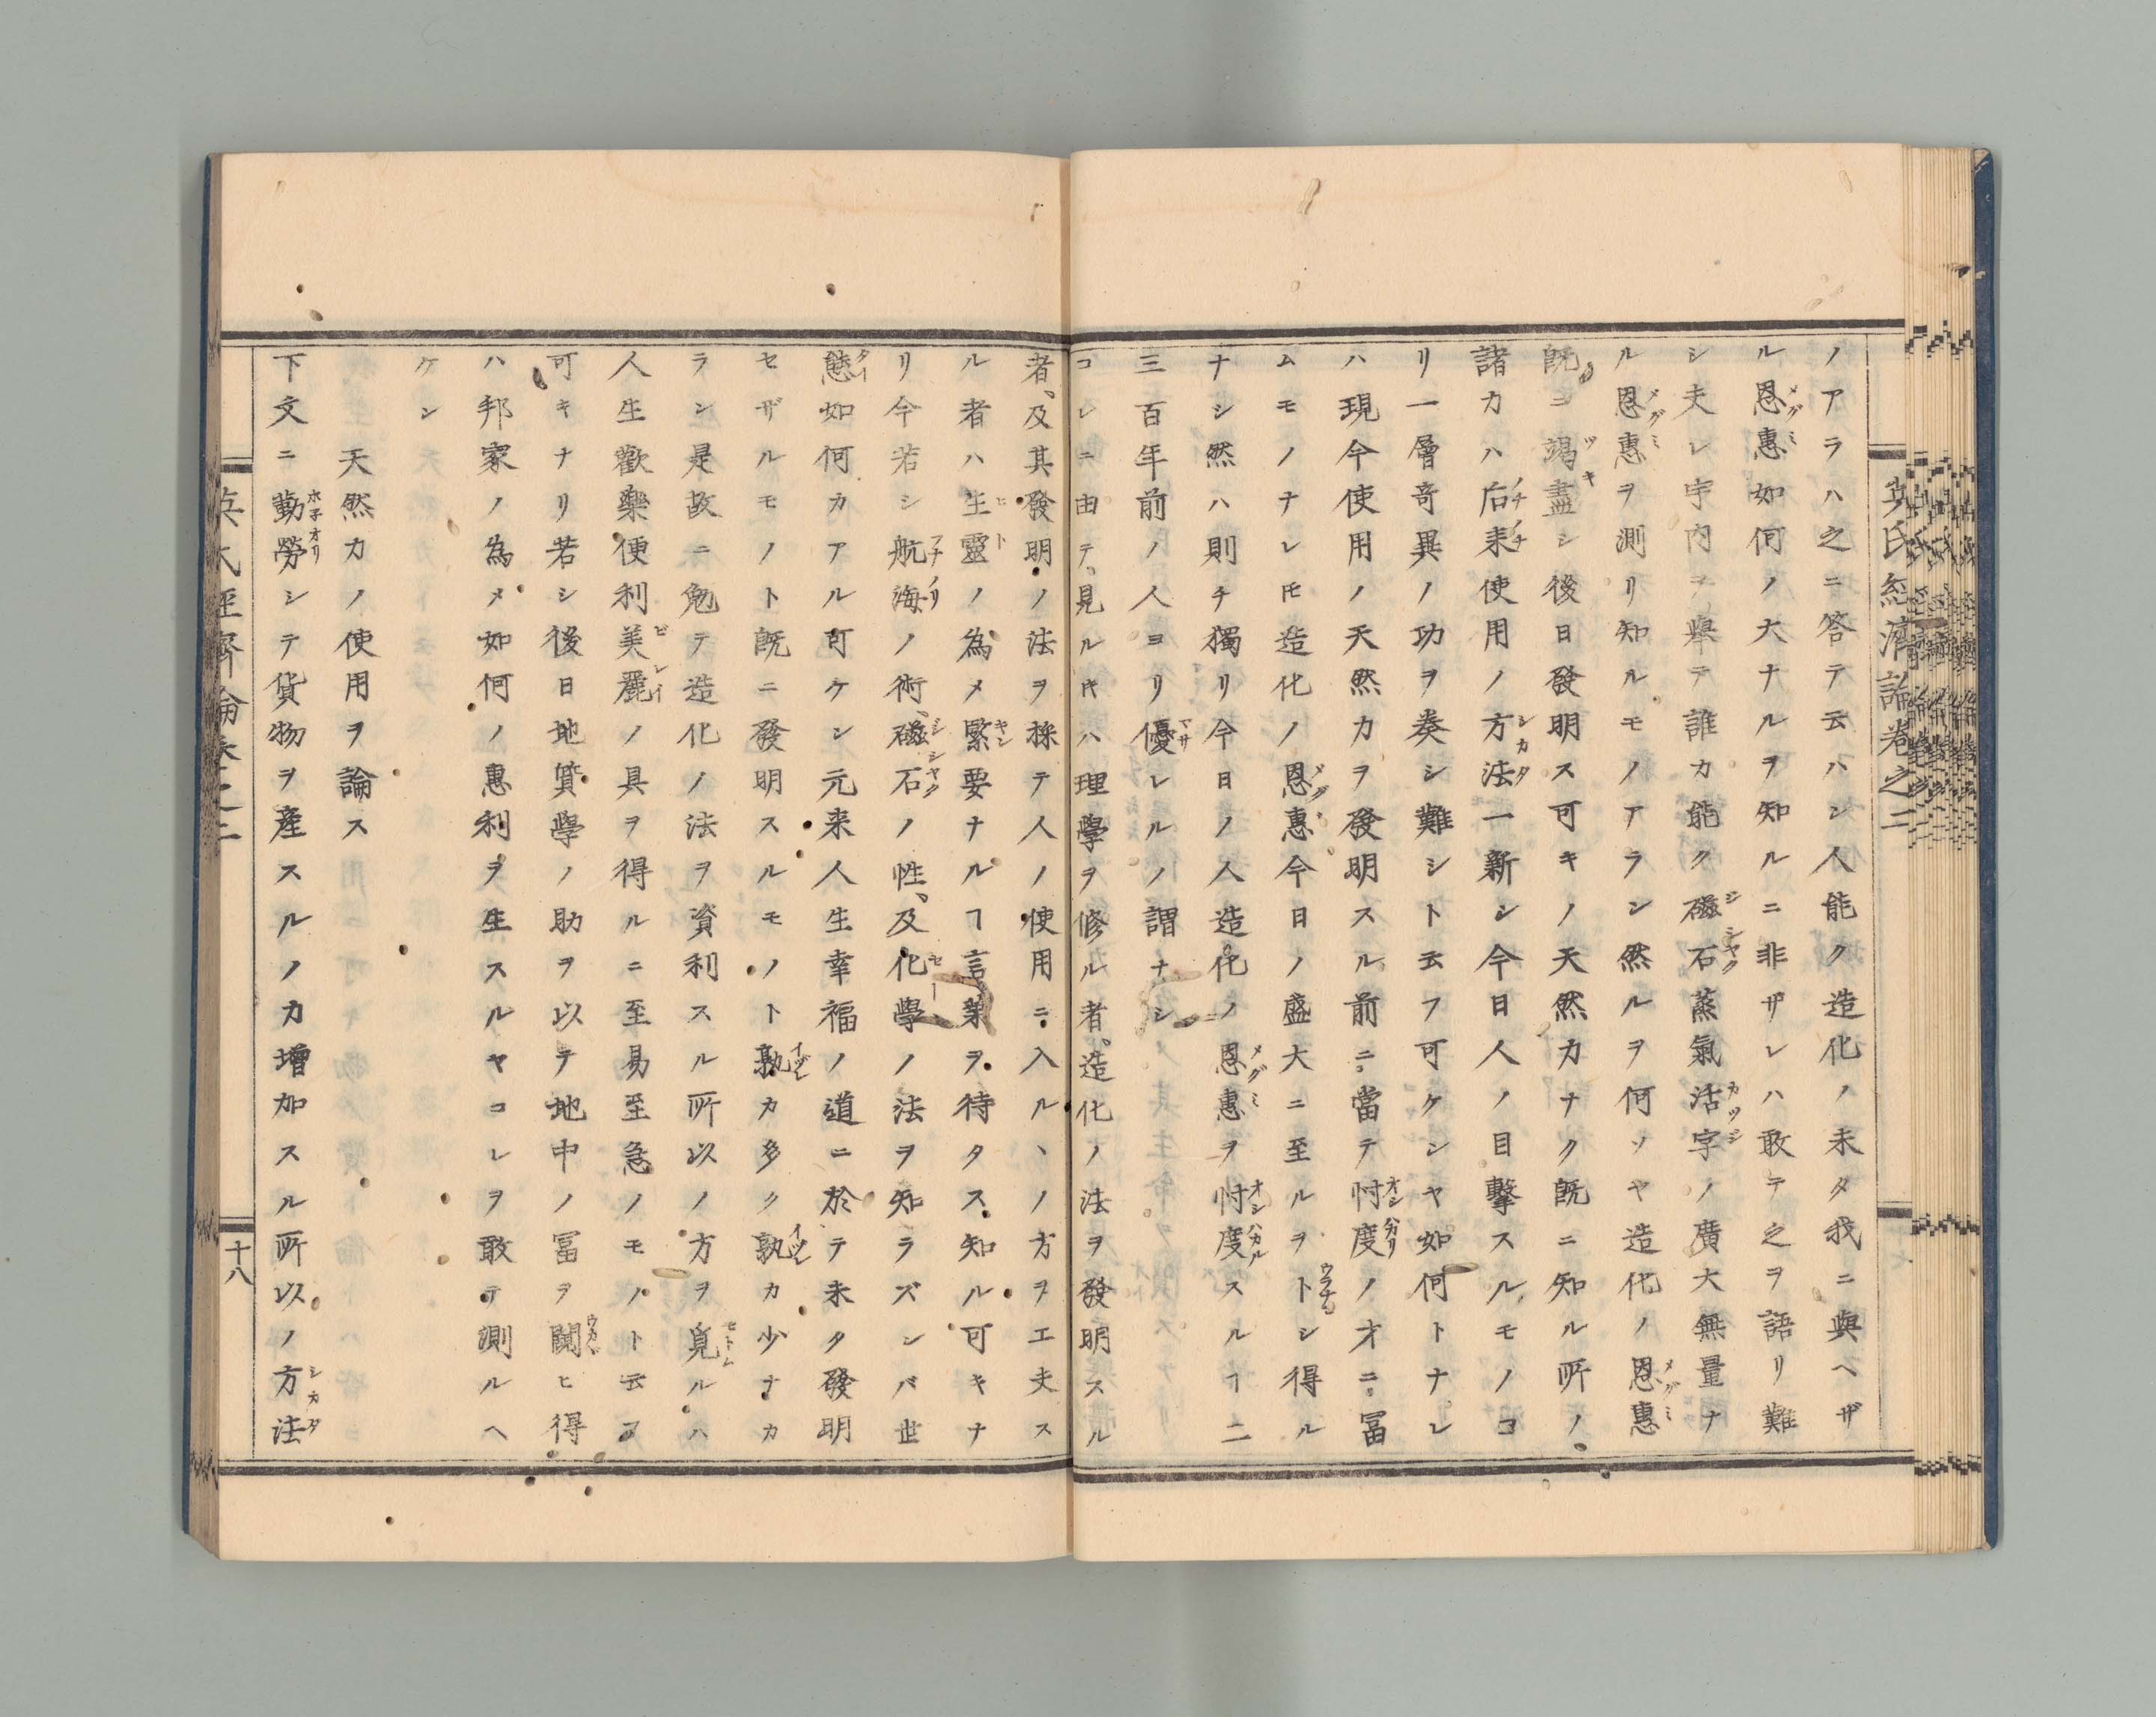 英氏經濟論卷之二
ノアラハ之ニ答テ云ハン人能ク造化ノ未タ我ニ與ヘザ
ル恩惠如何ノ大ナルヲ知ルニ非ザレハ敢テ之ヲ語リ難
シ夫レ宇内ヲ擧テ誰カ能ク磁石蒸氣活字ノ廣大無量ナ
ル恩惠ヲ測リ知ルモノアラン然ルヲ何ソヤ造化ノ恩惠
既ニ竭盡シ後日發明ス可キノ天然力ナク既ニ知ル所ノ
諸力ハ后來使用ノ方法一新シ今日人ノ目擊スルモノヨ
リ一層奇異ノ功ヲ奏シ難シト云フ可ケンヤ如何トナレ
ハ現今使用ノ天然力ヲ發明スル前ニ當テ忖度ノ才ニ冨
ムモノナレ𪜈造化ノ恩惠今日ノ盛大ニ至ルヲトシ得ル
ナシ然ハ則チ獨リ今日ノ人造化ノ恩惠ヲ忖度スルヿ二
三百年前ノ人ヨリ優レルノ謂ナシ
コレニ由テ見ルキハ理學ヲ修ル者造化ノ法ヲ發明スル
者、及其發明ノ法ヲ採テ人ノ使用ニ入ルヽノ方ヲ工夫ス
ル者ハ生靈ノ為メ緊要ナルヿ言葉ヲ待タス知ル可キナ
リ今若シ航海ノ術、磁石ノ性、及化學ノ法ヲ知ラズンバ世
態如何カアル可ケン元来人生幸福ノ道ニ於テ未タ發明
セザルモノト既ニ發明スルモノト孰カ多ク孰カ少ナカ
ラン是故ニ勉テ造化ノ法ヲ資利スル所以ノ方ヲ覓ルハ
人生歡樂便利美麗ノ具ヲ得ルニ至易至急ノモノト云フ
可キナリ若シ後日地質學ノ助ヲ以テ地中ノ冨ヲ闚ヒ得
ハ邦家ノ為メ如何ノ惠利ヲ生スルヤコレヲ敢テ測ルヘ
ケン
天然力ノ使用ヲ論ス
下文ニ勤勞シテ貨物ヲ産スルノ力增加スル所以ノ方法
英氏經濟論卷之二
十八